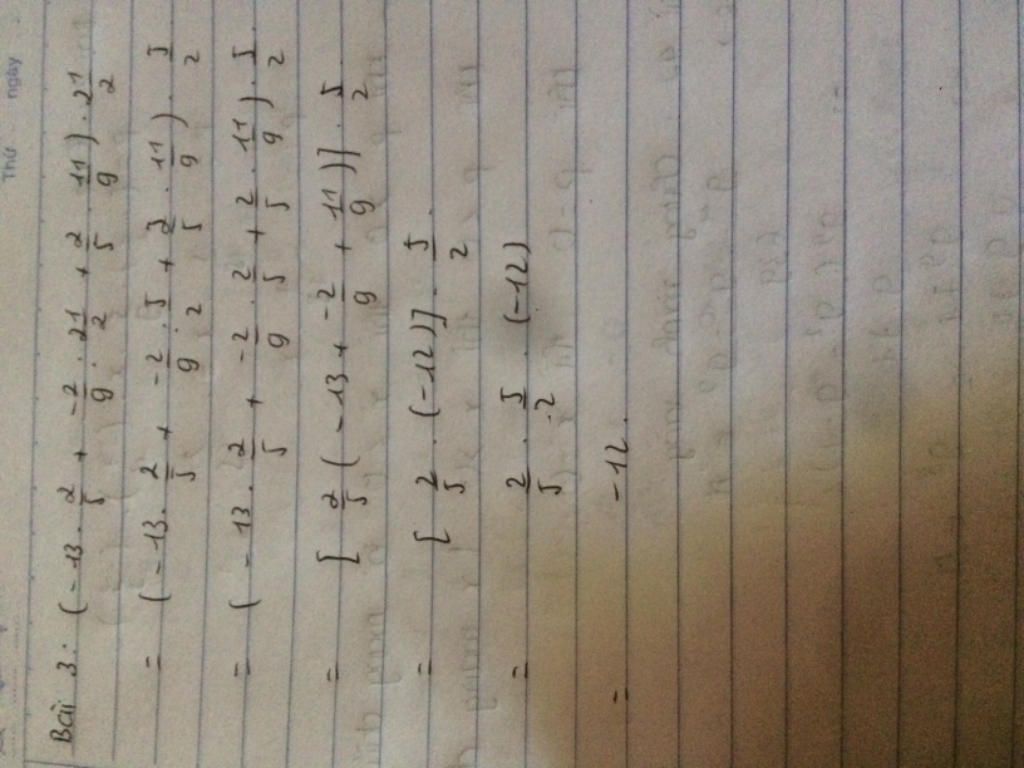 Thứ ngày
Bài 3: (-13 . 2/5 + -2/9 : 2 1/2 + 2/5 . 11/9) . 2 1/2
= (-13 . 2/5 + -2/9 : 5/2 + 2/5 . 11/9) . 5/2
= (-13 . 2/5 + -2/9 . 2/5 + 2/5 . 11/9) . 5/2
= [2/5 (-13 + -2/9 + 11/9)] . 5/2
= [2/5 . (-12)] . 5/2
= 2/5 . 5/2 . (-12)
= -12.